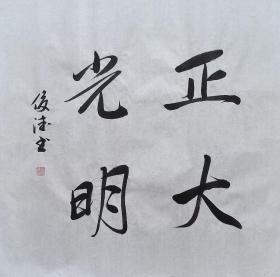 正大
光明
俊德书